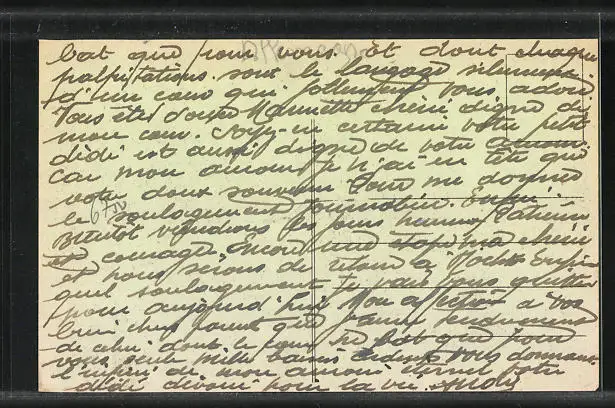 bat que pour vous. Et dont chaque
palpitations sont le langage silencieux
d'un cœur qui follement vous adore
Vous êtes d'oser Mannette chérie digne de
mon cœur. Soyez-en certaine votre petit
dédé est aussi digne de votre amour
car mon amour je n'ai en tête que
votre doux souvenir pour me donner
le soulagement
Bientôt viendrons les jours heureux Patience
et courage. Encore une étape ma chérie
et nous serons de retour à
quel soulagement Je vais vous quitter
pour aujourd'hui Mon affection à vos
bien chers parents que j'aime tendrement
de celui dont le cœur ne bat que pour
vous seule mille baisers vous donnant
l'infini de mon amour éternel votre
dédé dévoué pour la vie André